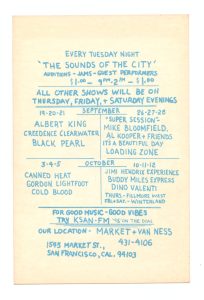 EVERY TUESDAY NIGHT
"THE SOUNDS OF THE CITY"
AUDITIONS - JAMS - GUEST PERFORMERS
$1.00 - 9PM-2AM - $1.00
ALL OTHER SHOWS WILL BE ON
THURSDAY, FRIDAY, + SATURDAY EVENINGS
19-20-21 SEPTEMBER 26-27-28
ALBERT KING
CREEDENCE CLEARWATER
BLACK PEARL
"SUPER SESSION"
MIKE BLOOMFIELD,
AL KOOPER + FRIENDS
IT'S A BEAUTIFUL DAY
LOADING ZONE
3-4-5 OCTOBER 10-11-12
CANNED HEAT
GORDON LIGHTFOOT
COLD BLOOD
JIMI HENDRIX EXPERIENCE
BUDDY MILES EXPRESS
DINO VALENTI
THURS - FILLMORE WEST
FRI + SAT. - WINTERLAND
FOR GOOD MUSIC - GOOD VIBES
TRY KSAN-FM
OUR LOCATION - MARKET + VAN NESS
1545 MARKET ST., 431-4106
SAN FRANCISCO, CAL. 94103